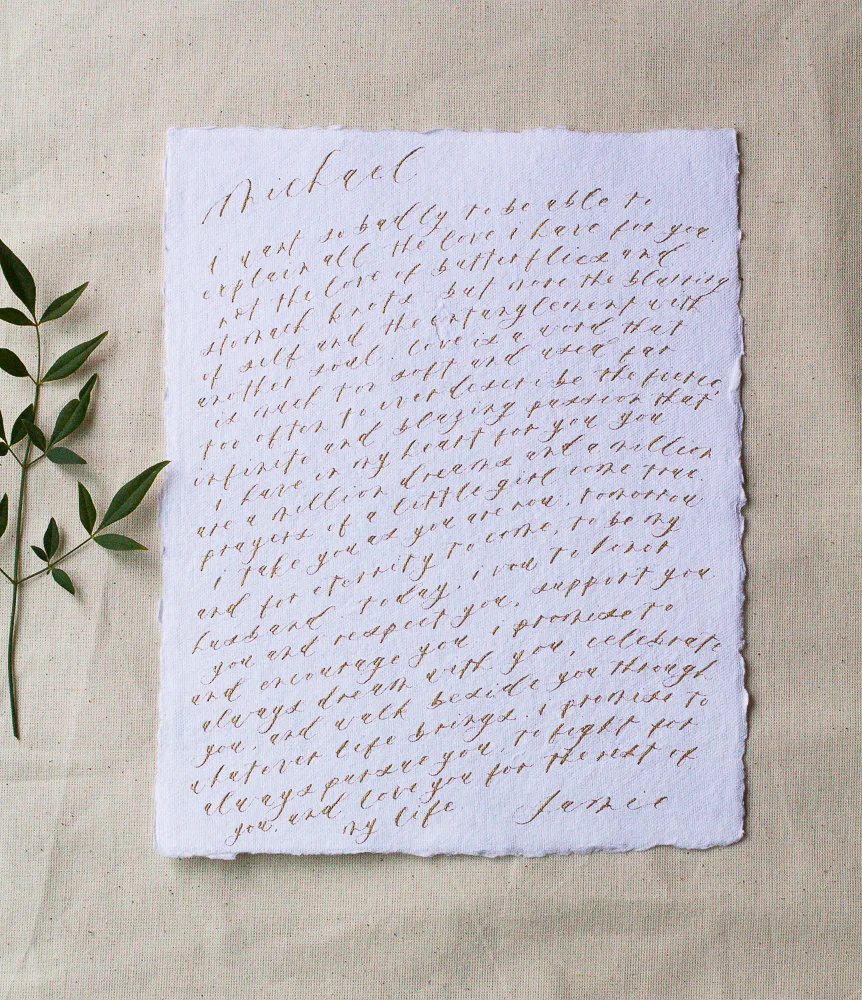 Michael
i want so badly to be able to
explain all the love i have for you.
not the love of butterflies and
stomach knots but more the blurring
of self and the entanglement with
another soul. love is a word that
is much too soft and used far
too often to ever describe the fierce,
infinite and blazing passion that
i have in my heart for you. you
are a million dreams and a million
prayers of a little girl come true.
i take you as you are now, tomorrow
and for eternity to come, to be my
husband. today, i vow to honor
you and respect you, support you
and encourage you. i promise to
always dream with you, celebrate
you, and walk beside you through
whatever life brings. i promise to
always pursue you, to fight for
you, and love you for the rest of
my life Jamie